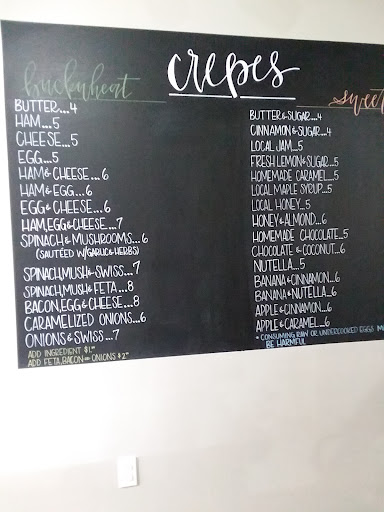 crepes
buckwheat
BUTTER...4
HAM...5
CHEESE...5
EGG...5
HAM & CHEESE...6
HAM & EGG...6
EGG & CHEESE...6
HAM, EGG & CHEESE...7
SPINACH & MUSHROOMS...6
(SAUTÉED W/GARLIC & HERBS)
SPINACH, MUSH & SWISS...7
SPINACH, MUSH & FETA...8
BACON, EGG & CHEESE...8
CARAMELIZED ONIONS...6
ONIONS & SWISS...7
ADD INGREDIENT $1.
ADD FETA, BACON OR ONIONS $2.
sweet
BUTTER & SUGAR...4
CINNAMON & SUGAR...4
LOCAL JAM...5
FRESH LEMON & SUGAR...5
HOMEMADE CARAMEL...5
LOCAL MAPLE SYRUP...5
LOCAL HONEY...5
HONEY & ALMOND...6
HOMEMADE CHOCOLATE...5
CHOCOLATE & COCONUT...6
NUTELLA...5
BANANA & CINNAMON...6
BANANA & NUTELLA...6
APPLE & CINNAMON...6
APPLE & CARAMEL...6
* CONSUMING RAW OR UNDERCOOKED EGGS M
BE HARMFUL